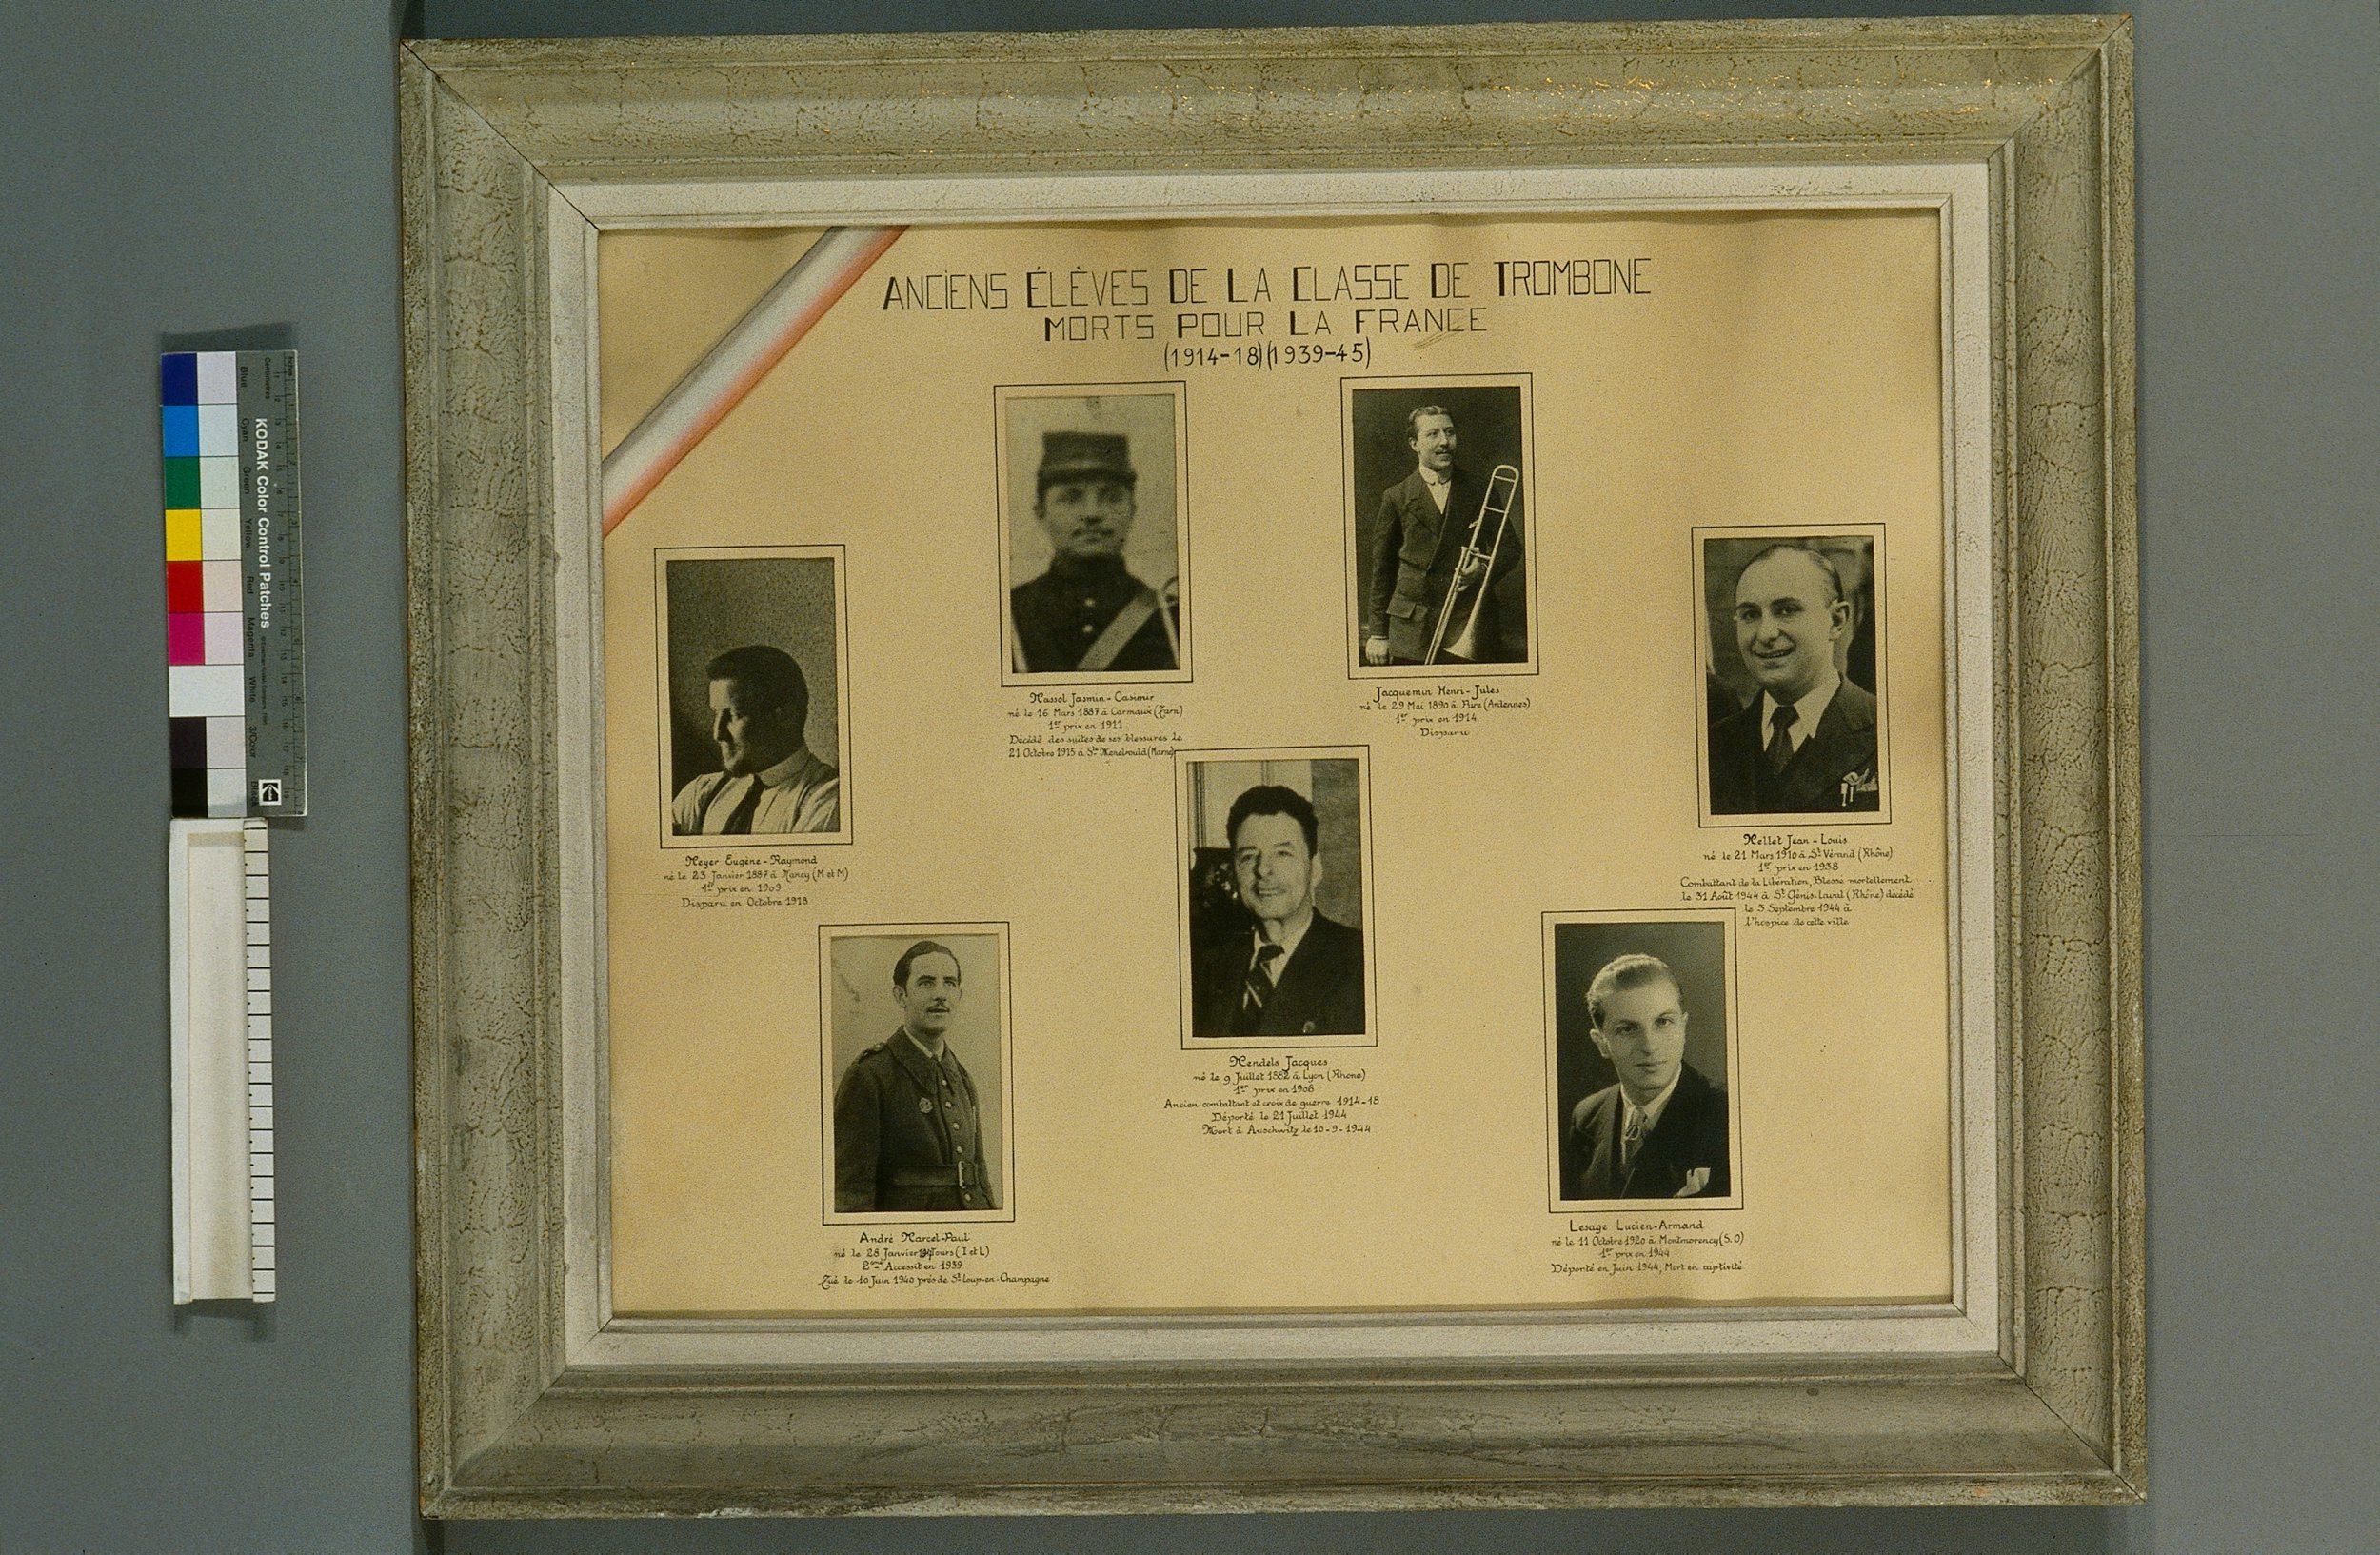 ANCIENS ÉLÈVES DE LA CLASSE DE TROMBONE
MORTS POUR LA FRANCE
(1914-18)(1939-45)
Meyer Eugène-Raymond
né le 23 Janvier 1887 à Nancy (M et M)
1er prix en 1909
Disparu en Octobre 1918
Massol Jasmin-Casimir
né le 16 Mars 1887 à Carmaux (Tarn)
1er prix en 1911
Décédé des suites de ses blessures le
21 Octobre 1915 à Ste Menehould (Marne)
Jacquemin Henri-Jules
né le 29 Mai 1890 à (Ardennes)
1er prix en 1914
Disparu
Mellet Jean-Louis
né le 21 Mars 1910 à St Vérand (Rhône)
1er prix en 1938
Combattant de la Libération, Blessé mortellement
le 31 Août 1944 à St Génis-Laval (Rhône) décédé
le 3 Septembre 1944 à
l'hospice de cette ville
André Marcel-Paul
né le 28 Janvier Tours (I et L)
2eme Accessit en 1939
Tué le 10 Juin 1940 près de St Loup-en-Champagne
Mendels Jacques
né le 9 Juillet 1882 à Lyon (Rhone)
1er prix en 1906
Ancien combattant et croix de guerre 1914-18
Déporté le 21 Juillet 1944
Mort à Auschwitz le 10-9-1944
Lesage Lucien-Armand
né le 11 Octobre 1920 à Montmorency (S.O)
1er prix en 1944
Déporté en Juin 1944, Mort en captivité
KODAK Color Control Patches
Blue Cyan Green Yellow Red Magenta White 3/Color Black
Centimetres